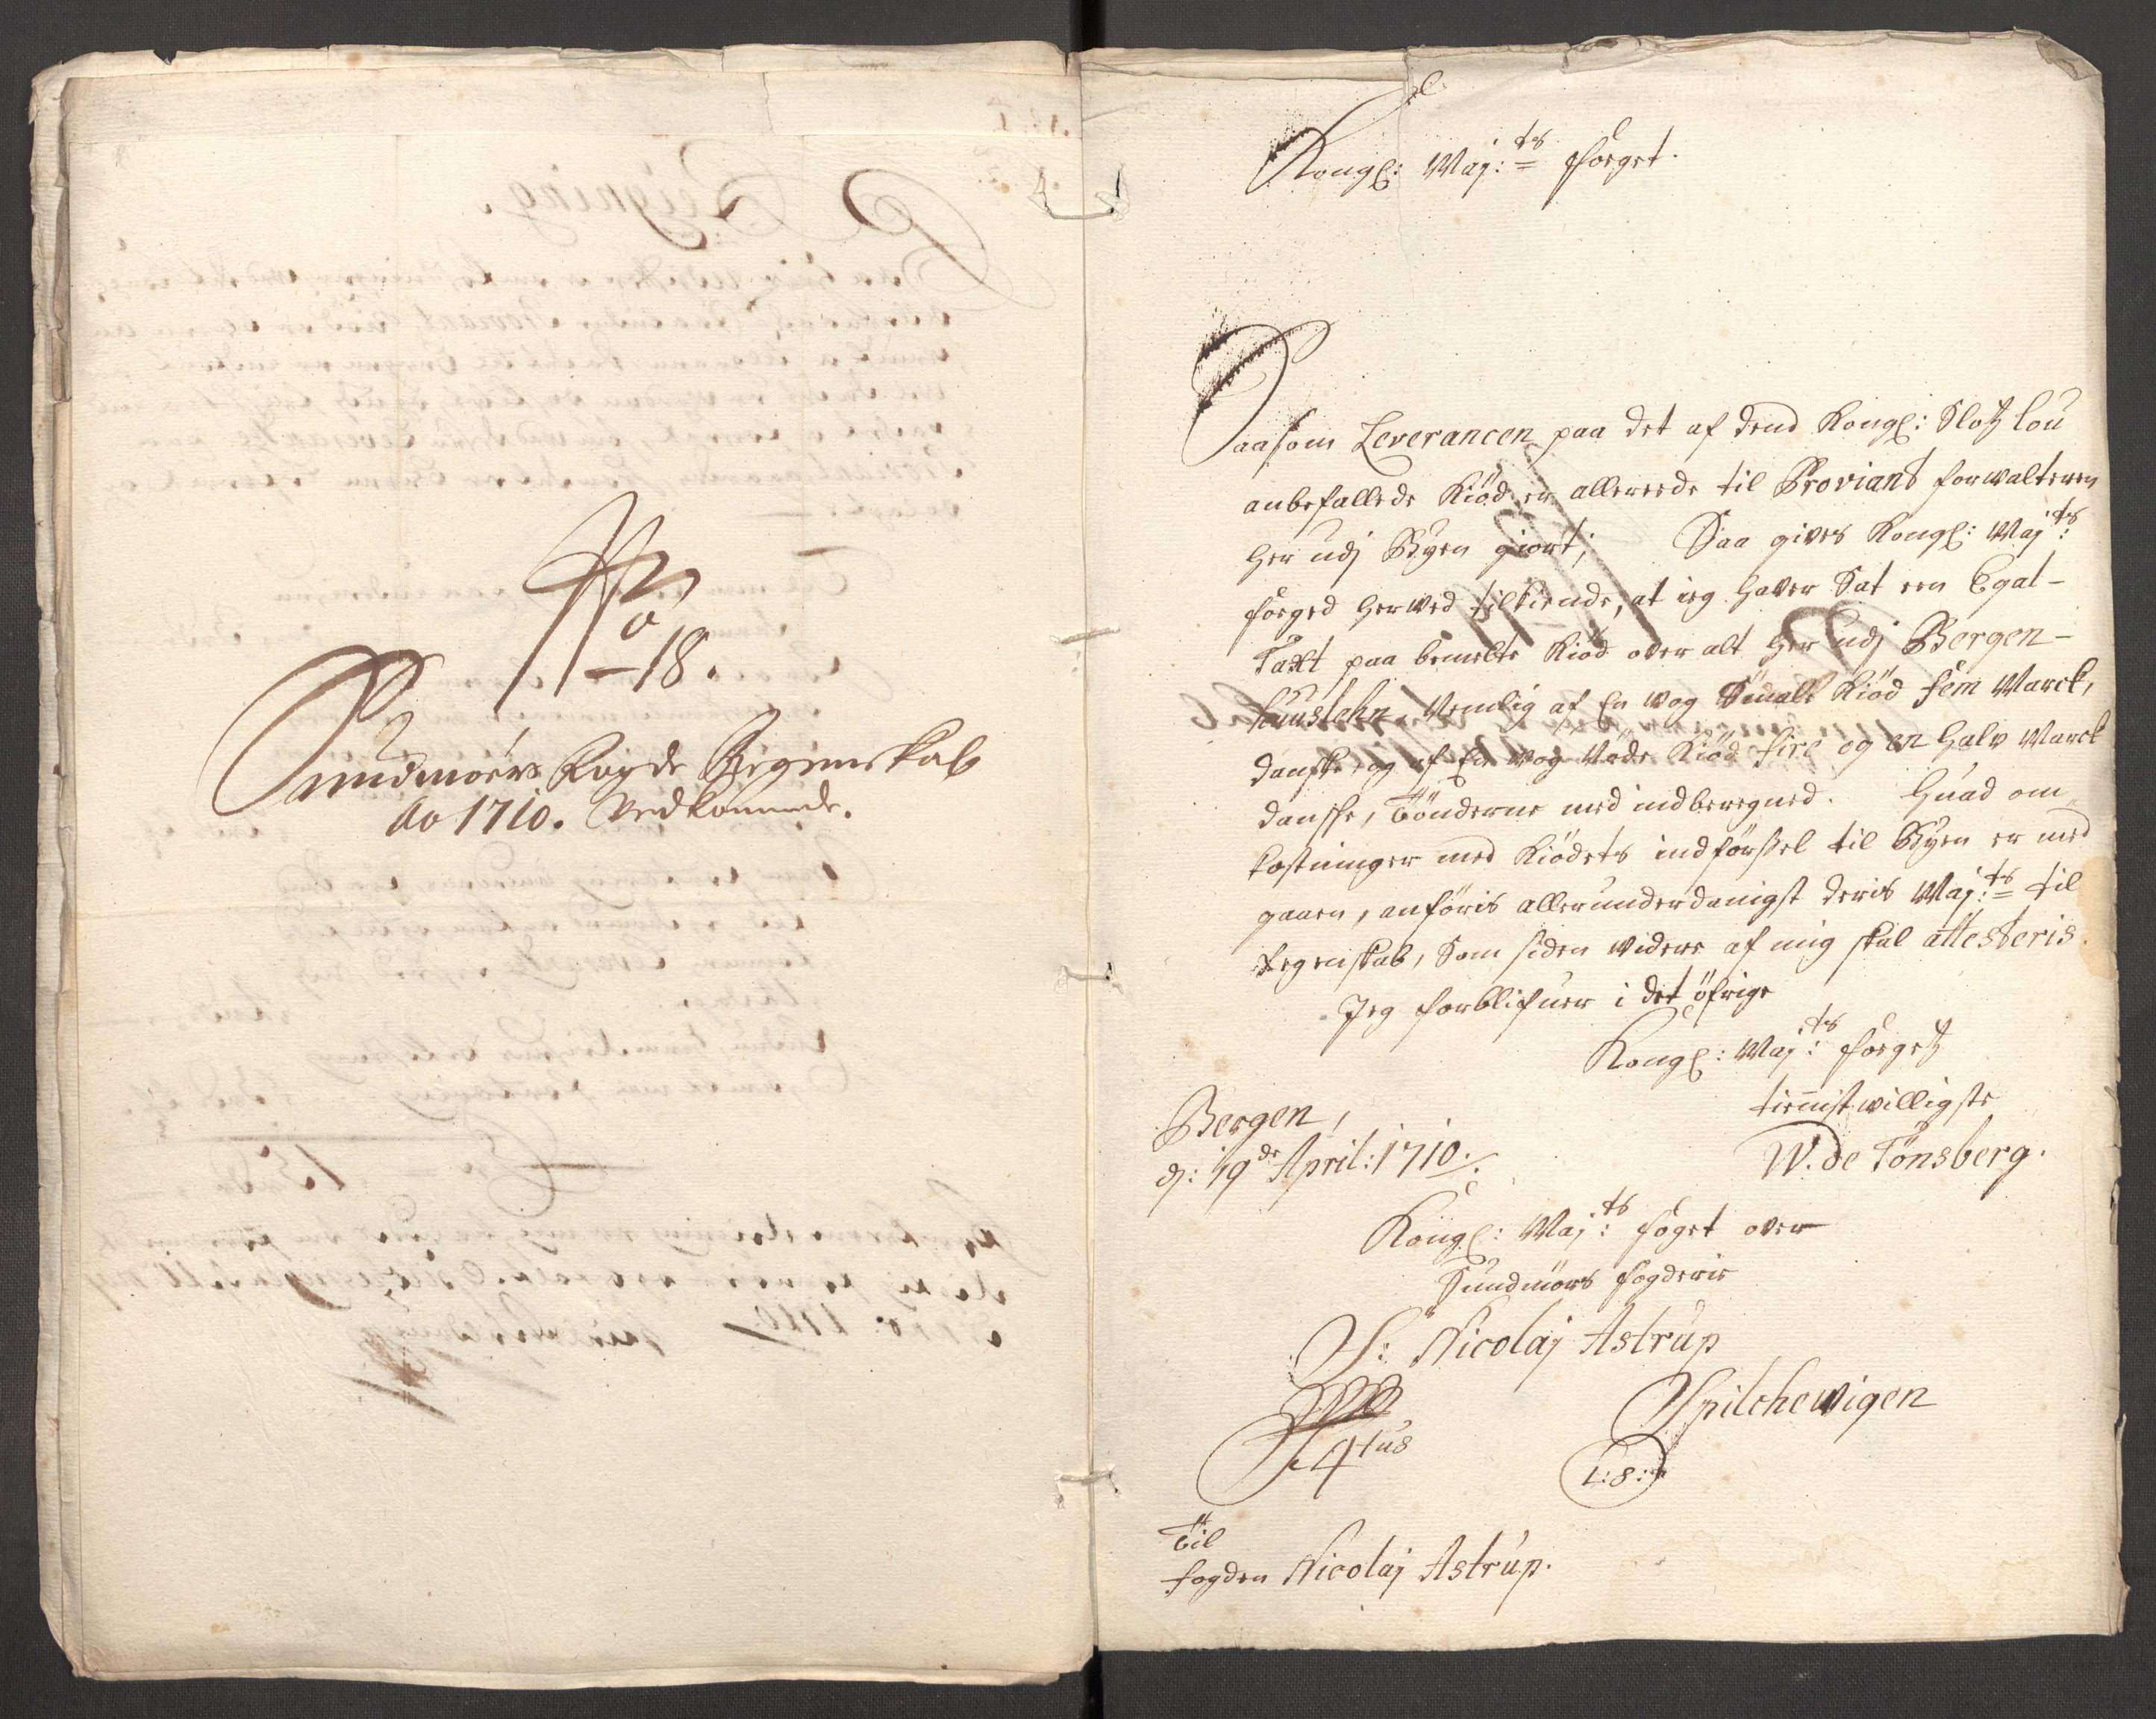 No
18.
Sundmøers Fogde Regenskab
Ao 1710. Vedkommende.
Kongl: Maj:ts foeget.
Saasom Leverancen paa det af dend Kongl: Slotz lou
anbefallede Kiød er allereede til Proviant forwalteren
her udj Byen giort; Saa gives Kongl: Majts:
foeged herved tilkiende, at ieg haver Sat een Egal-
Taxt paa bemelte Kiød over alt her udj Bergen-
huuslehn, Nemlig af En wog Smale Kiød fem Marck,
danske, og af En wog Nøde Kiød fire og en halv Marck
danske, Tønderne med indberegned. Huad om
kostninger med Kiødets indførsel til Byen er med
gaaen, anføris allerunderdanigst deris Maj:ts til
Regenskab, Som siden widere af mig skal attesteris.
Jeg forblifuer i det øfrige
Kongl: Maj:ts foegetz
tienistwilligste
W. de Tönsberg.
Bergen,
dj: 19de April: 1710.
Kongl: Maj:ts foget over
Sundmørs fogderie
Sr: Nicolaj Astrup
4tus
Spilchewigen
L:S:
Til
fogden Nicolaj Astrup.